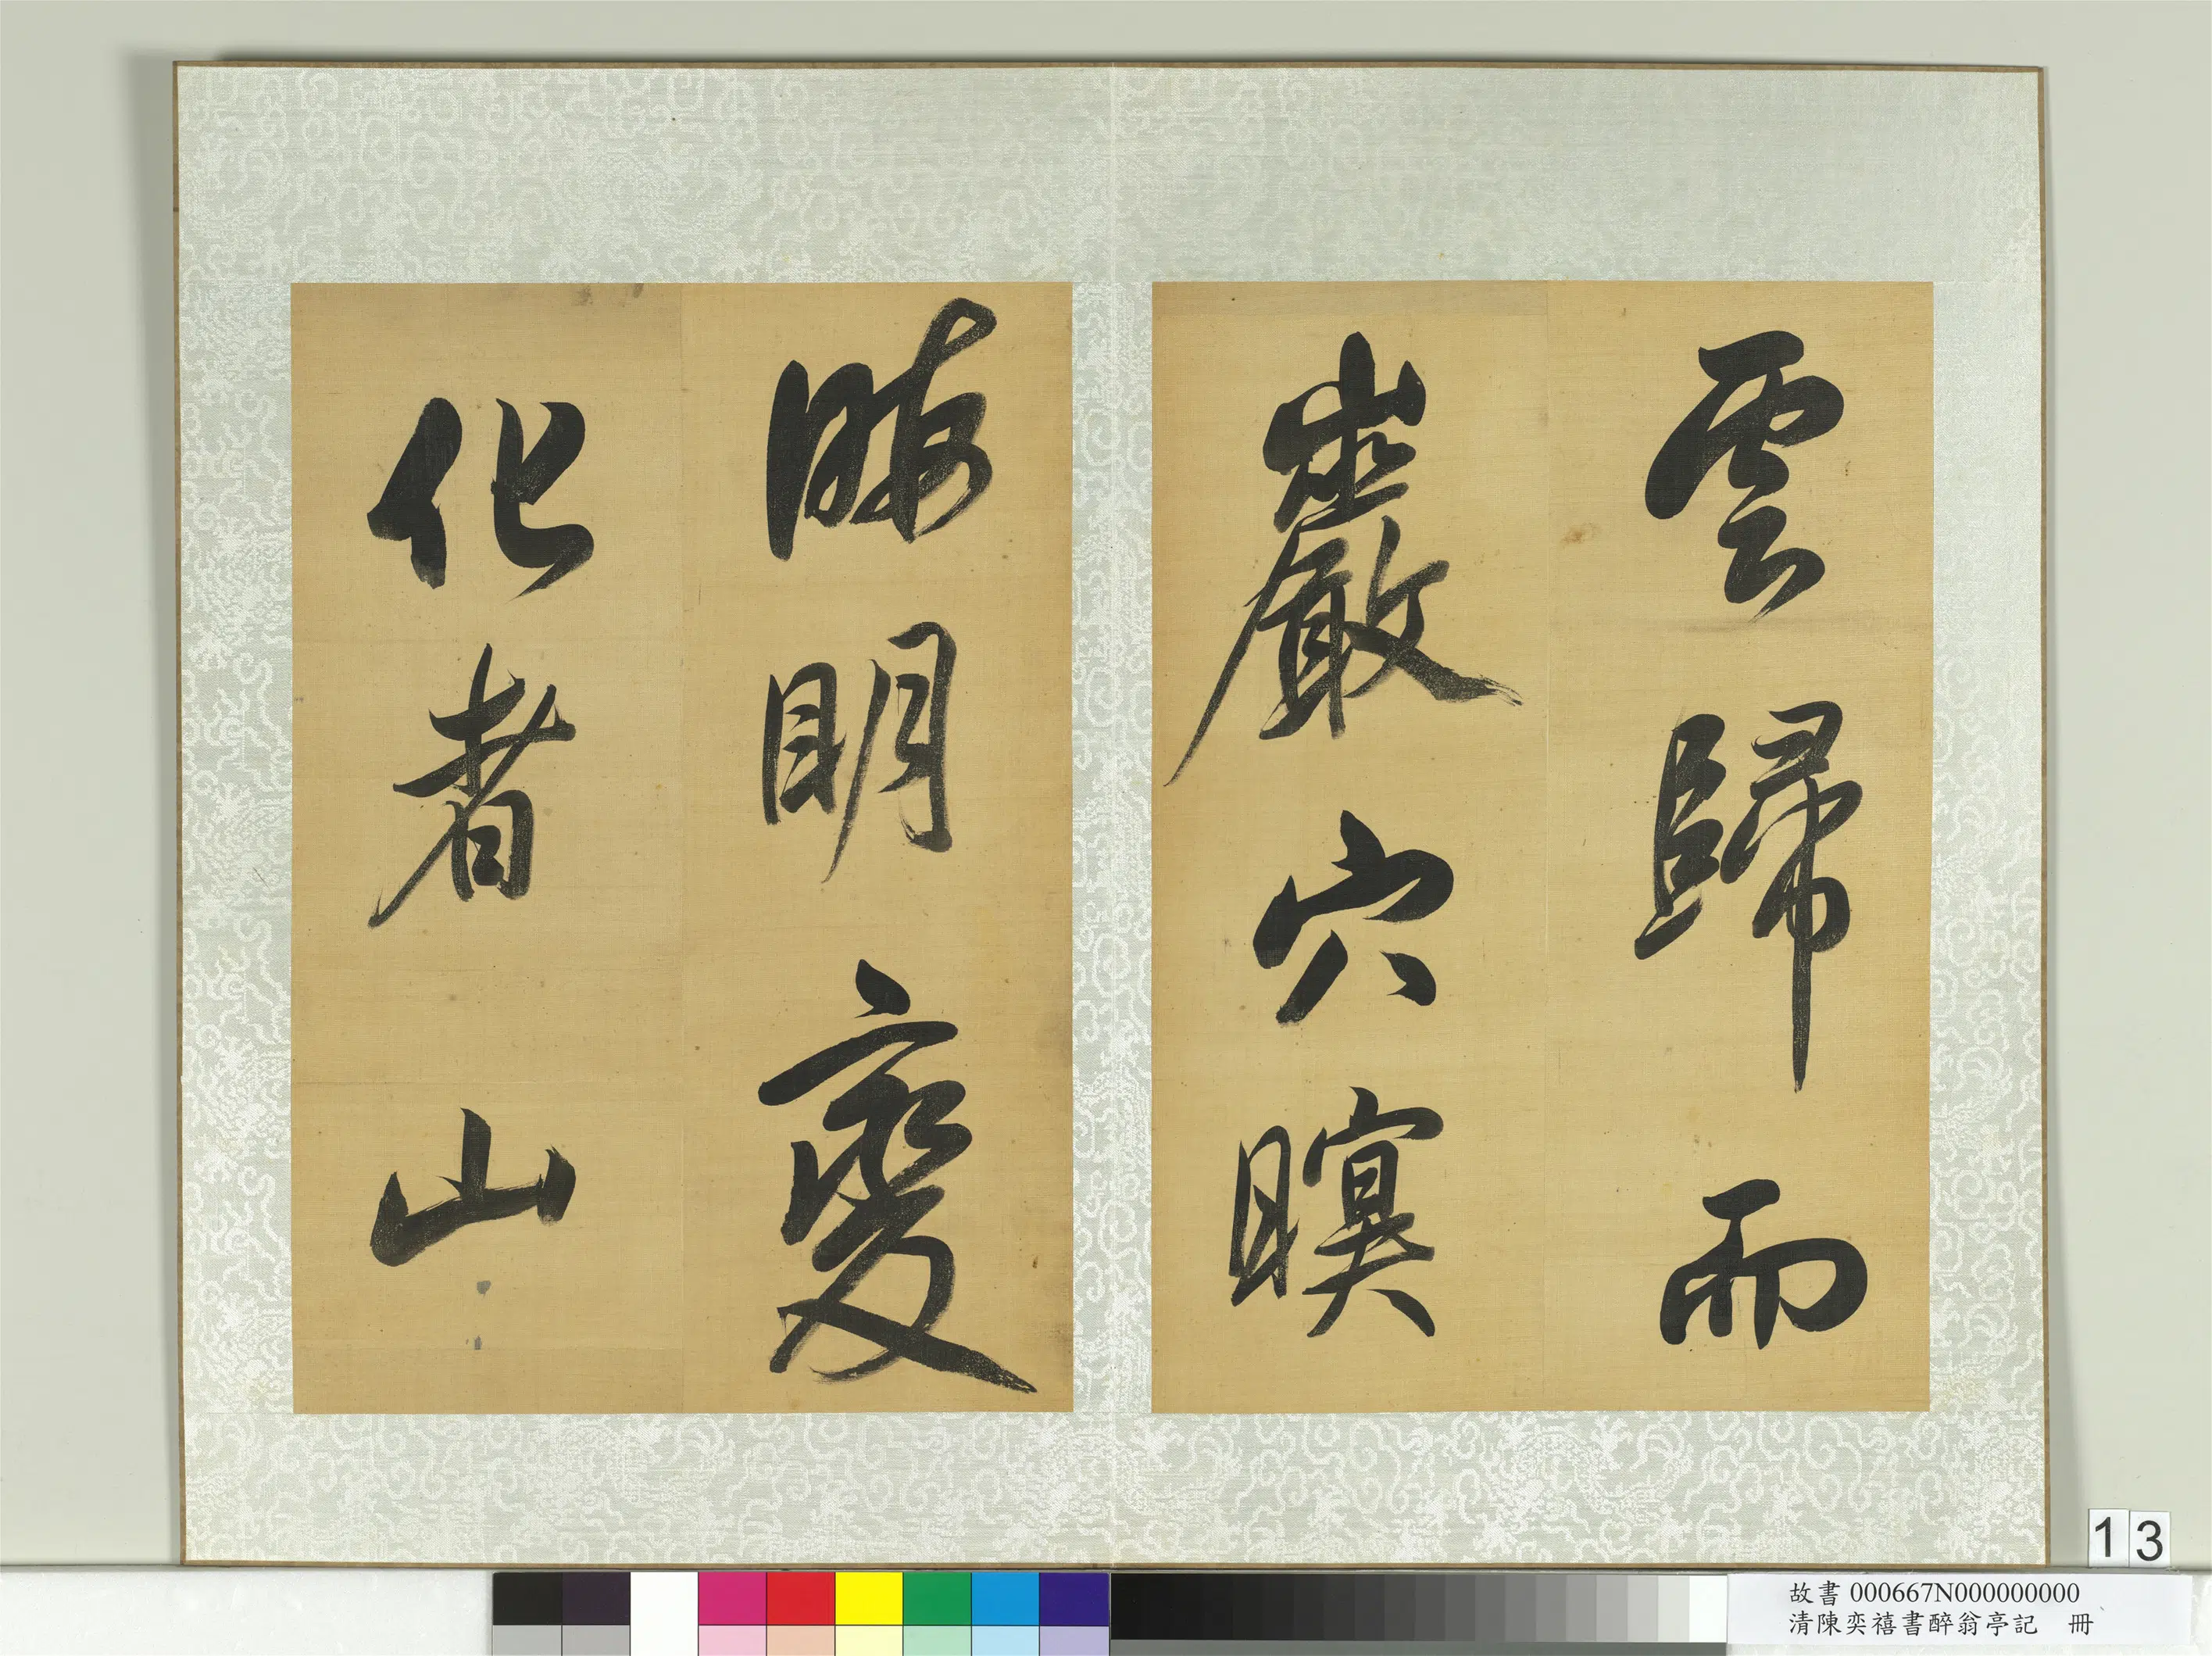 雲歸而
巖穴暝
晦明變
化者山
13
故書 000667N000000000
清陳奕禧書醉翁亭記 冊